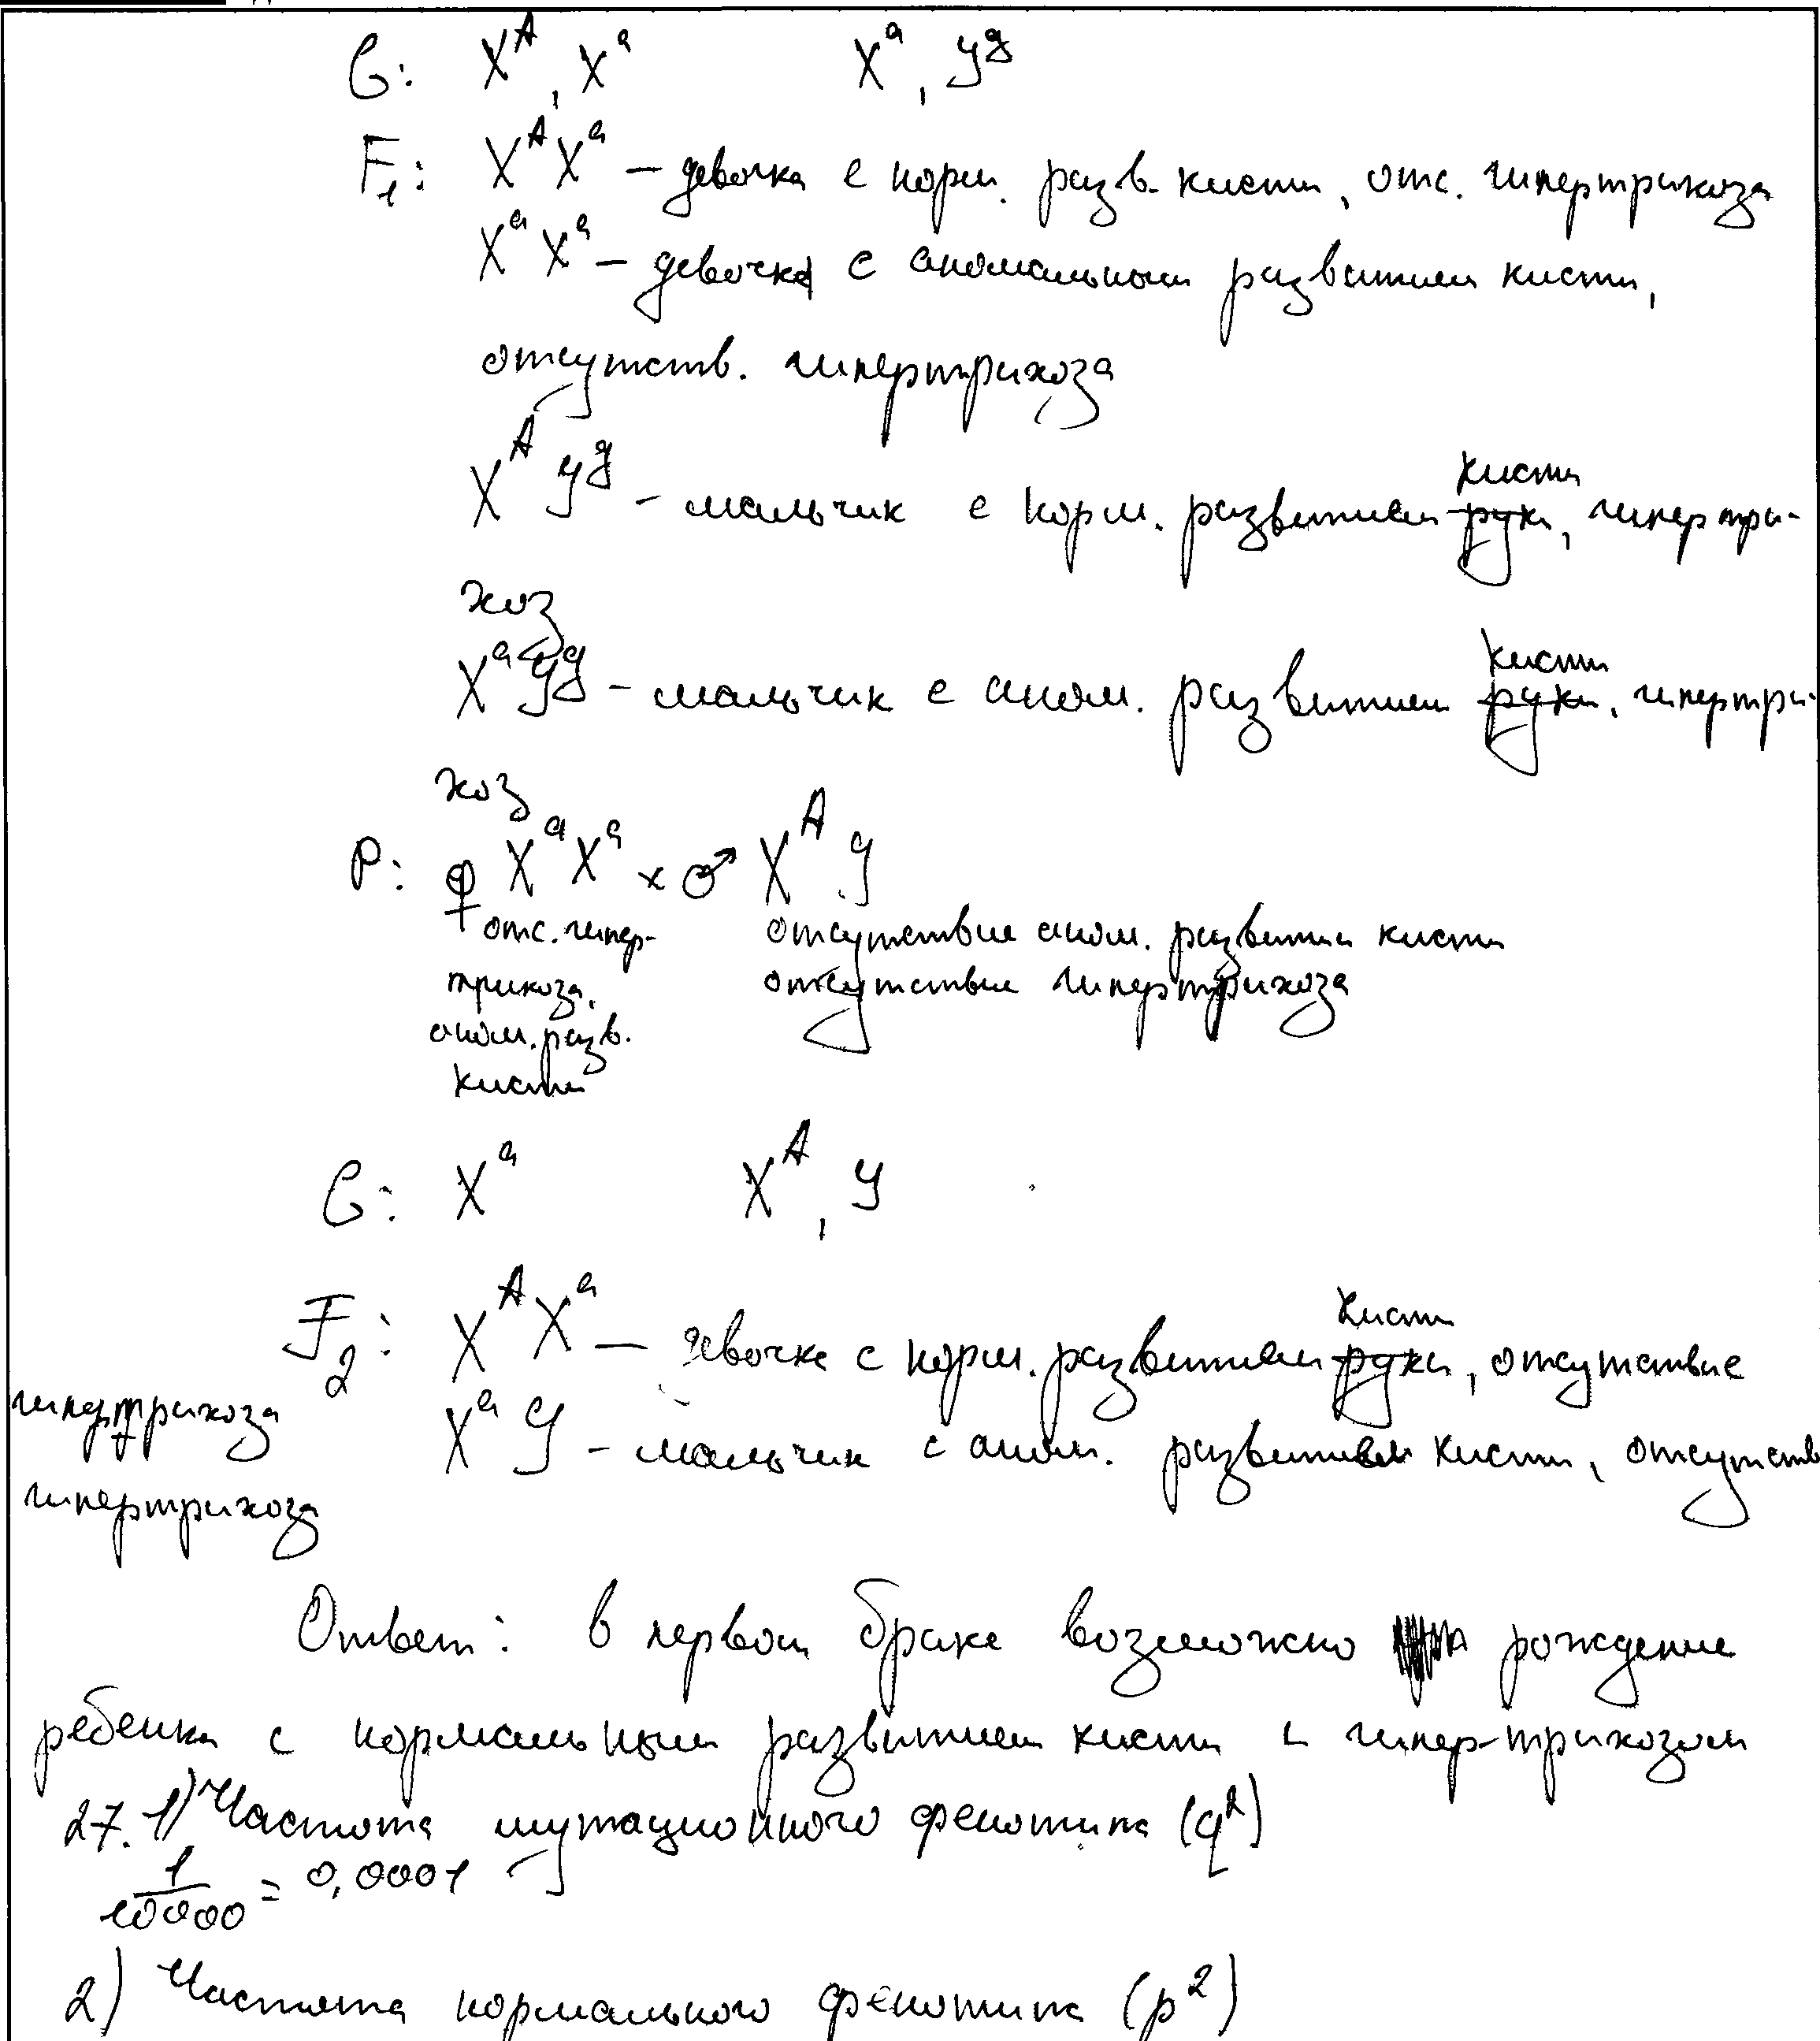 G: X^A, X^a X^a, y^g
F₁: X^A X^a – девочка с норм. разв. кисти, отс. гипертрихоза
X^a X^a – девочка с аномальным развитием кисти,
отсутств. гипертрихоза
X^A y^g – мальчик с норм. развитием ~~руки~~ кисти, гипертри-
хоз
X^a y^g – мальчик с аном. развитием ~~руки~~ кисти, гипертри-
хоз
P: ♀ X^a X^a × ♂ X^A y
отс. гипер- отсутствие аном. развития кисти
трихоза, отсутствие гипертрихоза
аном. разв.
кисти
G: X^a X^A, y
F₂: X^A X^a – девочка с норм. развитием ~~руки~~ кисти, отсутствие
гипертрихоза
X^a y – мальчик с аном. развитием кисти, отсутств
гипертрихоза
Ответ: в первом браке возможно рождение
ребенка с нормальным развитием кисти и гипер-трихозом
27. 1) Частота мутационного фенотипа (q²)
1/10000 = 0,0001
2) Частота нормального фенотипа (p²)